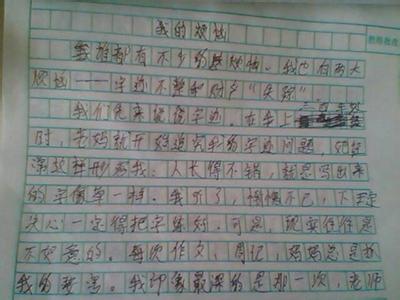 我的烦恼
谁都有不少的烦恼。我也有两大
烦恼——字迹不整和财产“失踪”
我们先来说说字迹。在早上
时，老妈就开始追究我的字迹问题，她
常这样形容我：人长得不错，就是写出来
的字像草一样。我听了，惭愧不已，下定
决心一定得把字练好。可是，现实往往是
不如意的。每次作文，周记，妈妈总是把
我的 我印象最深的是那一次，老师